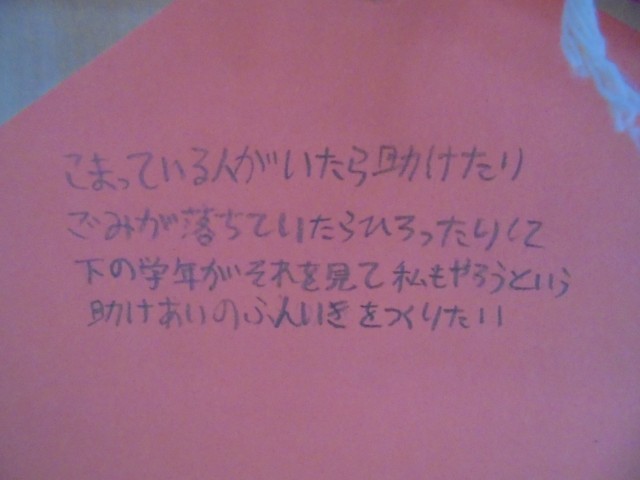 こまっている人がいたら助けたり
ごみが落ちていたらひろったりして
下の学年がそれを見て私もやろうという
助けあいのふんいきをつくりたい